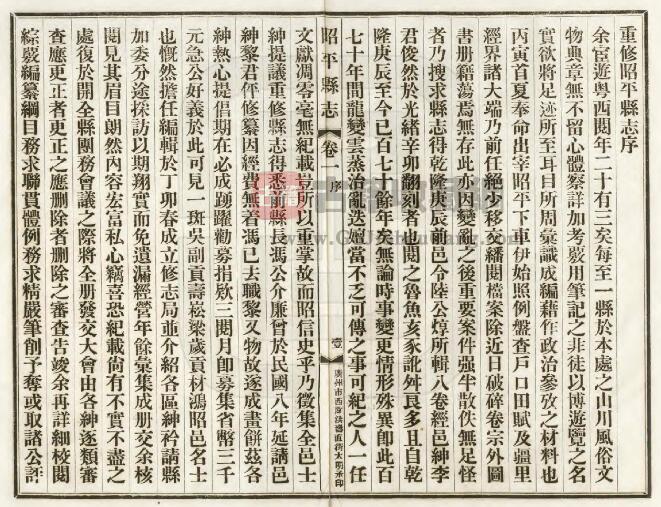 重修昭平縣志序
余宦遊粵西閱年二十有三矣每至一縣於本處之山川風俗文
物典章無不留心體察詳加考覈用筆記之非徒以博遊覽之名
實欲將足迹所至耳目所周彙識成編藉作政治參攷之材料也
丙寅首夏奉命出宰昭平下車伊始照例盤查戶口田賦及疆里
經界諸大端乃前任絕少移交繙閱檔案除近日破碎卷宗外圖
書册籍蕩焉無存此亦因變亂之後重要案件强半散佚無足怪
者乃搜求縣志得乾隆庚辰前邑令陸公焞所輯八卷經邑紳李
君俊然於光緒辛卯翻刻者也閱之魯魚亥豕訛舛良多且自乾
隆庚辰至今已百七十餘年矣無論時事變更情形殊異卽此百
七十年間龍變雲蒸治亂迭嬗當不乏可傳之事可紀之人一任
昭平縣志 卷一 序 壹 廣州市西湖法德直街大明承印
文獻凋零毫無紀載豈所以重掌故而昭信史乎乃徵集全邑士
紳提議重修縣志得悉前縣長馮公介廉曾於民國八年延請邑
紳黎君伻修纂因經費無着馮已去職黎又物故遂成畫餠茲各
紳熱心提倡期在必成踴躍勸募捐欵三閱月卽募集省幣三千
元急公好義於此可見一斑吳副貢壽崧梁歲貢材鴻昭邑名士
也慨然擔任編輯於丁卯春成立修志局並介紹各區紳矜請縣
加委分途採訪以期翔實而免遺漏經營年餘彙集成册交余核
閱見其眉目朗然內容宏富私心竊喜恐紀載倘有不實不盡之
處復於開全縣團務會議之際將全册發交大會由各紳逐類審
查應更正者更正之應删除者删除之審查告竣余再詳細校閱
綜覈編纂綱目務求聯貫體例務求精嚴筆削予奪或取諸公評